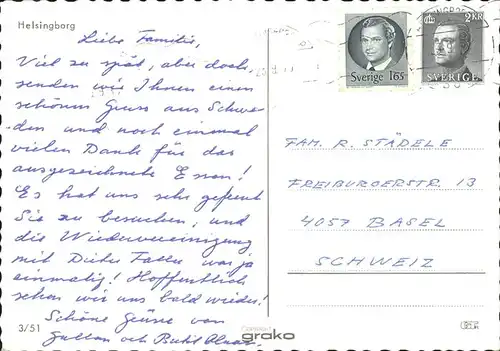 Helsingborg
Liebe Familie,
Viel zu spät, aber doch,
senden wir Ihnen einen
schönen Gruss aus Schwe-
den und noch einmal
vielen Dank für das
ausgezeichnete Essen!
Es hat uns sehr gefreut
Sie zu besuchen, und
die Wiedervereinigung
mit Dicke Fatter war ja
einmalig! Hoffentlich
sehen wir uns bald wieder!
Schöne Grüsse von
Gullan och Bertil
3/51
Sverige 165
2 KR
SVERIGE
FAM. R. STÄDELE
FREIBURGERSTR. 13
4057 BASEL
SCHWEIZ
grako